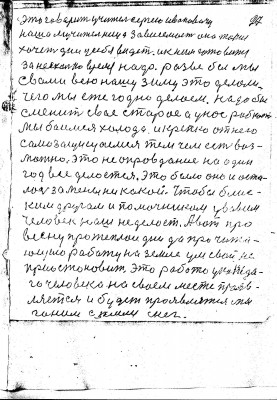 Это говорит учитель сергею ивановичу
наша мучительница зависимость она тоже
хочет дни у себя видеть, и к ним готовится
за несколько время. напр. разве бы мы
с вами всю нашу зиму это делали.
чего мы ежегодно делаем, надо бы
сменит свое старое а у нас
мы боимся холода. и крепко от него
самозащищаемся тем чем есть воз-
можно, это не оправдание на один
год все делается, Это было оно и оста-
лось замены никакой. чтобы близ-
ким другам и помощникам
человек наш не делает. А вот про
весну про теплои дни да про чита-
ющую работу на земле ум свой не
приостановит, Это работа у каждо-
го человека на своем месте прояв-
ляется и будет проявляется мы
гоним с земли снег.